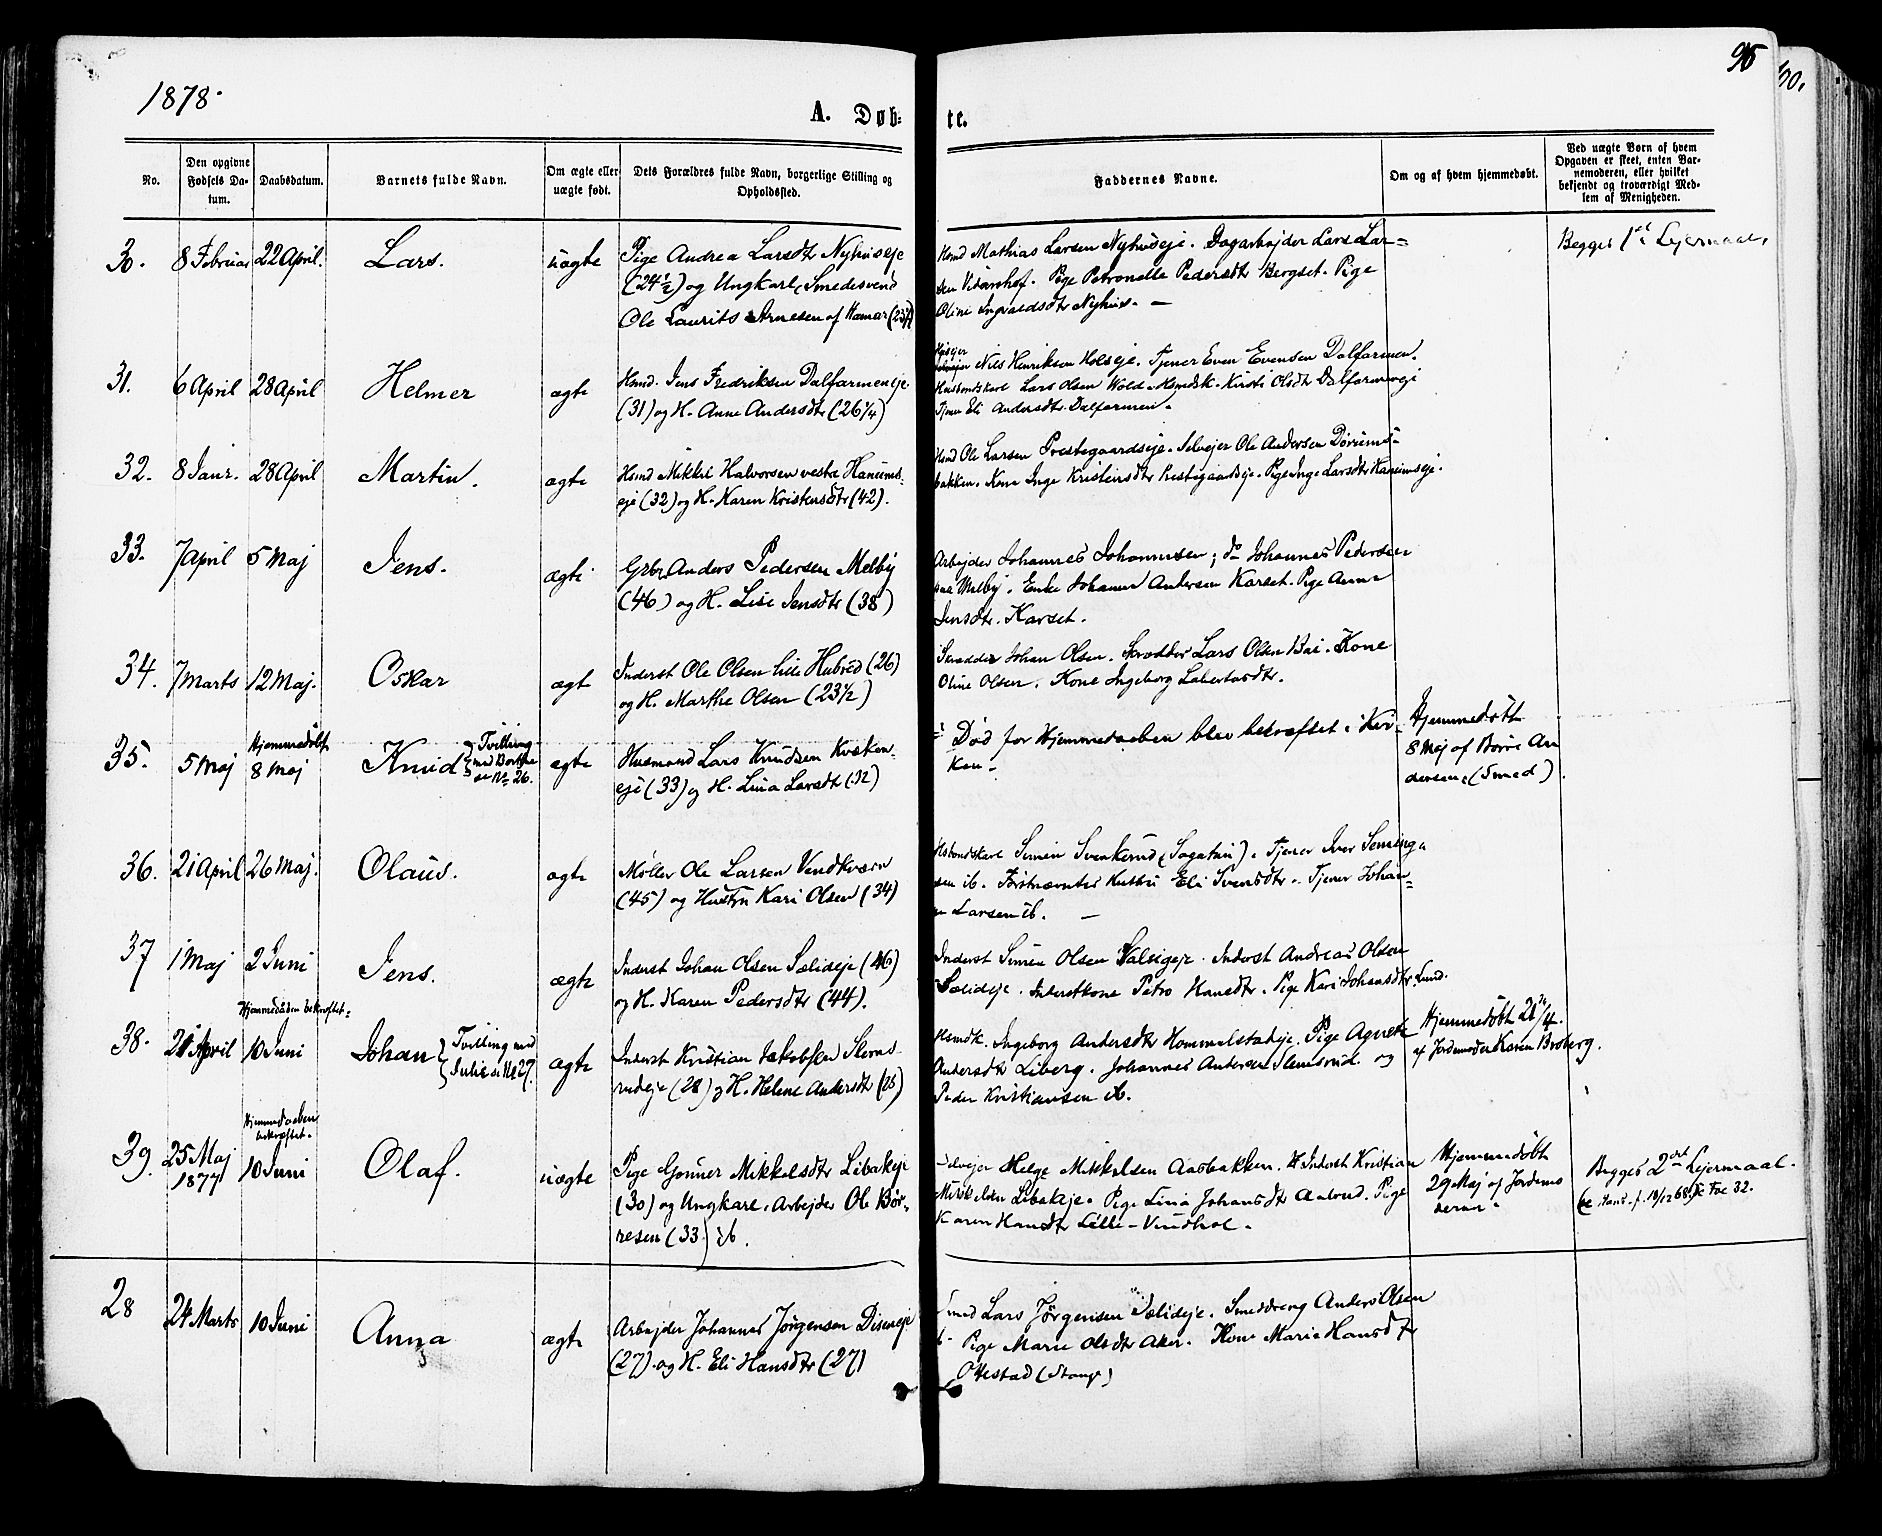 1878.
95
A. Døb- te.
No.
Den opgivne Fødsels Datum.
Daabsdatum.
Barnets fulde Navn.
Om ægte eller uægte født.
Dets Forældres fulde Navn, borgerlige Stilling og Opholdssted.
Faddernes Navne.
Om og af hvem hjemmedøbt.
Ved uægte Børn af hvem Opgaven er skeet, enten Barnemoderen, eller hvilket bekjendt og troværdigt Medlem af Menigheden.
30. 8 Februar 22 April. Lars. uægte
Pige Andrea Larsdtr Nyhuseje
(24 1/2) og Ungkarl, Smedesvend
Ole Laurits Arnesen af Hamar
Hsmd Mathias Larsen Nyhuseje. Dagarbejder Lars Lar=
sen Pige Petronelle Pedersdtr Bergset. Pige
Oline Ingvaldsdtr Nyhus. —
Begges 1ste Lejermaal.
31. 6 April 28 April Helmer ægte
Hsmd. Jens Fredriksen Dalfarmeneje
(31) og H. Anne Andersdtr (26 1/4)
Nils Henriksen Holseje. Tjener Even Evensen Dalfarmen.
Husbondskarl Lars Olsen Wold. Hsmdsk. Kirsti Olsdtr Dalfarmeneje
Tjener Eli Andersdtr Dalfarmen.
32. 8 Janr. 28 April Martin. ægte
Hsmd Mikkel Halvorsen vestre
eje (32) og H. Karen Kristensdtr (42).
Hsmd Ole Larsen Prestegaardseje. Selvejer Ole Andersen
bakken. Kone Inge Kristensdtr Prestegaardseje. Pige Inge Larsdtr
33. 7 April 5 Maj Jens. ægte
Grbr. Anders Pedersen Melby
(46) og H. Lise Jensdtr (38)
Arbejder Johannes Johannesen; do Johannes Pedersen
Melby. Enke Johanne Andersen Karset. Pige Anne
Jensdtr. Karset.
34. 7 Marts 12 Maj. Oskar ægte
Inderst Ole Olsen lille Hubred (26)
og H. Marthe Olsen (23 1/2)
Skrædder Johan Olsen. Skrædder Lars Olsen Kone
Oline Olsen. Kone Ingeborg
35. 5 Maj Hjemmedøbt 8 Maj Knud { Tvilling med Berthe se No 26. ægte
Husmand Lars Knudsen Kræken-
eje (33) og H. Lina Larsdtr (32)
Død før Hjemmedaaben blev bekræftet i Kir-
ken.
Hjemmedøbt
8 Maj af Børre An
dersen. (Smed)
36. 21 April 26 Maj. Olaus. ægte
Møller Ole Larsen Vendkværn
(45) og Hustru Kari Olsen (34)
Husbondskarl Simen Svenkerud Tjener Iver
sen ib. Førstnævntes Hustru Eli Svensdtr. Tjener Johan=
Larsen ib. —
37 1 Maj 2 Juni Jens. ægte
Inderst Johan Olsen Sælideje (46)
og H. Karen Pedersdtr (44).
Inderst Simen Olsen Inderst Andreas Olsen
Sælideje. Inderstkone Petro Hansdtr. Pige Kari Johansdtr Lund.
38. 21 April Hjemmedåben bekræftet= 10 Juni Johan { Tvilling med Julie se No 27. ægte
Inderst Kristian Jakobsen Slems-
rudeje (28) og H. Helene Andersdtr
Hsmdk. Ingeborg Andersdtr Hommelstadeje. Pige Agnete
Andersdtr Liberg. Johannes Andersen Slemsrud og
Peder Kristiansen ib.
Hjemmedøbt 21/4.
af Jordmoder Karen Broberg.
39. 25 Maj 1877 Hjemmedaaben bekræftet. 10 Juni Olaf. uægte
Pige Gunner Mikkelsdtr Libakeje
(30) og Ungkarl, Arbejder Ole Bør-
resen (33) ib.
Selvejer Helge Mikkelsen Aasbakken. Inderst Kristian
Mikkelsen Libakeje. Pige Lina Johansdtr Aalsrud. Pige
Karen Hansdtr Lille-Vindhol.
Hjemmedøbt
29 Maj af Jordemo
deren.
Begges 2det Lejermaal.
28 24 Marts 10 Juni Anna ægte
Arbejder Johannes Jørgensen Diseneje
(27). og H. Eli Hansdtr (27)
Smed Lars Jørgensen Sælideje. Smeddreng Anders Olsen
Pige Marie Olsdtr Aker. Kone Marie Hansdtr
Ottestad (Stange)